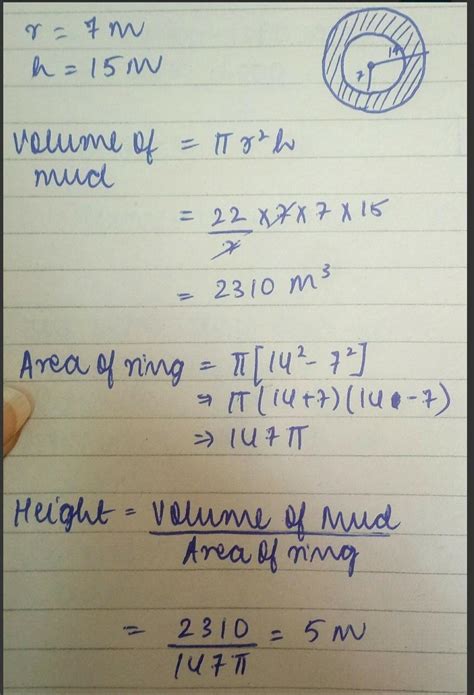 r = 7m
h = 15m
14
7
Volume of mud = πr²h
= 22/7 × 7 × 7 × 15
= 2310 m³
Area of ring = π[14² - 7²]
⇒ π(14+7)(14-7)
⇒ 147π
Height = Volume of Mud / Area of ring
= 2310/147π = 5m